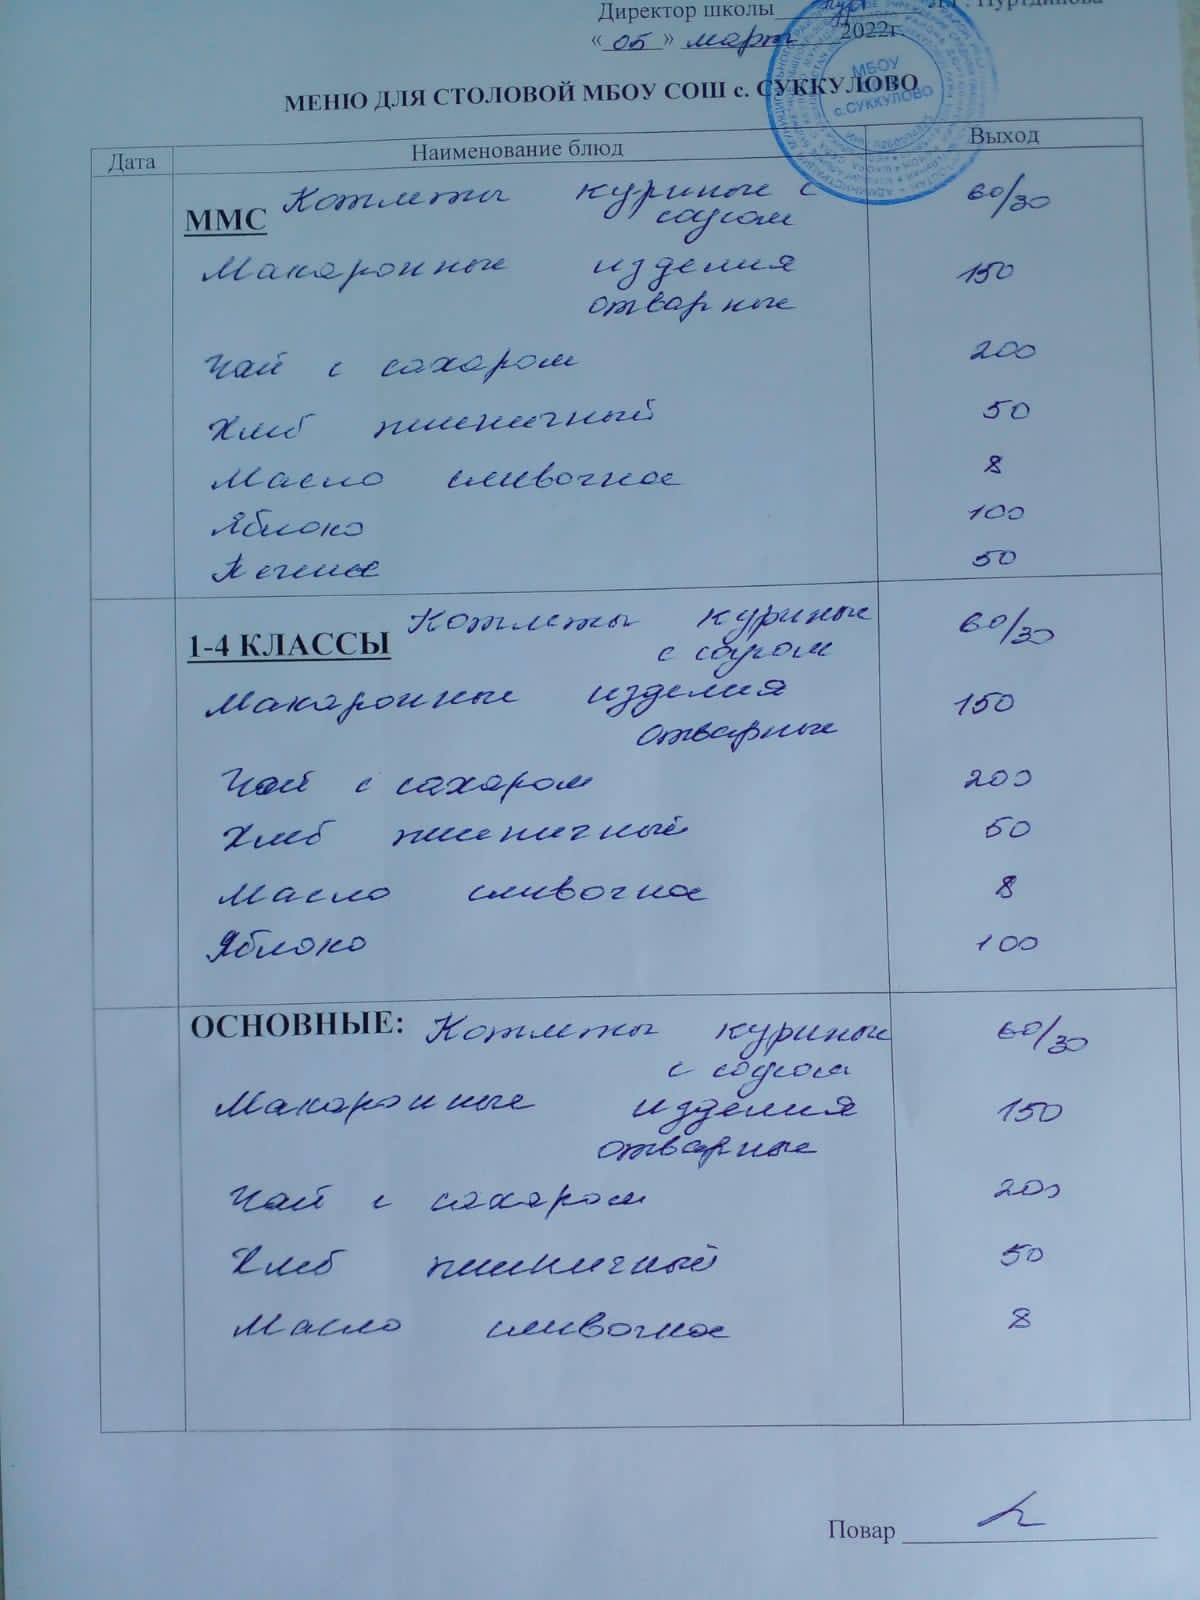 Директор школы Нуртдинова
«05» март 2022г.
МЕНЮ ДЛЯ СТОЛОВОЙ МБОУ СОШ с. СУККУЛОВО
МБОУ
с.СУККУЛОВО
Дата Наименование блюд Выход
ММС Котлеты куриные с 60/30
соусом
Макаронные изделия 150
отварные
Чай с сахаром 200
Хлеб пшеничный 50
Масло сливочное 8
Яблоко 100
Печенье 50
1-4 КЛАССЫ Котлеты куриные 60/30
с соусом
Макаронные изделия 150
отварные
Чай с сахаром 200
Хлеб пшеничный 50
Масло сливочное 8
Яблоко 100
ОСНОВНЫЕ: Котлеты куриные 60/30
с соусом
Макаронные изделия 150
отварные
Чай с сахаром 200
Хлеб пшеничный 50
Масло сливочное 8
Повар